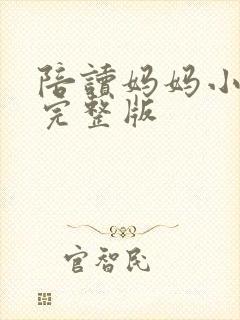 陪讀妈妈小
完整版
官智民